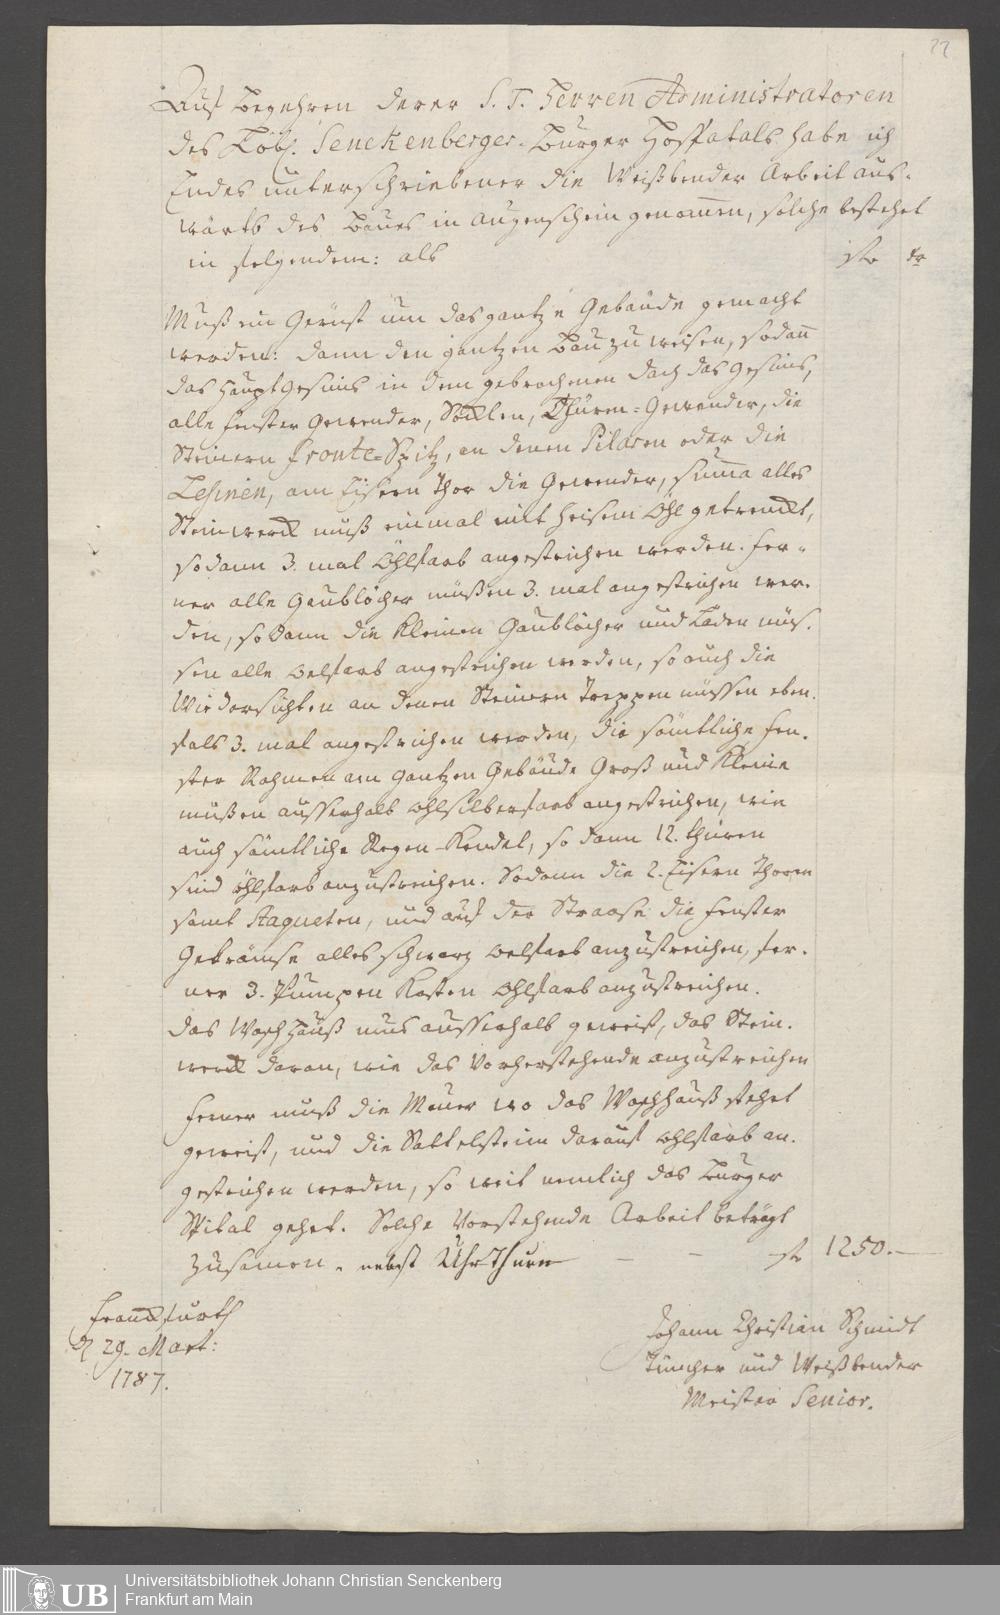 22
Auf Begehren derer S. T. Herren Administratoren
des Löbl. Senckenberger. Burger Hospitals habe ich
Endes unterschriebener die Weißbender Arbeit aus-
wärts des Baues in augenschein genommen, solche bestehet
in folgendem: als
fl xr
Muß ein Gerüst um das gantze Gebäude gemacht
werden: dann den gantzen Bau zu weisen, sodann
das Haupt Gesims in dem gebrochenen Dach das Gesims,
alle Fenster Gewender, Socklen, Thüren-Gewender, die
Steinern Fronte-Spitz, an denen Pilaren oder die
Lesinen, am Eisern Thor die Gewender, summa alles
Steinwerck muß einmal mit heisem Öhl getrenckt,
sodann 3. mal Öhlfarb angestrichen werden. fer-
ner alle Gaublöcher müßen 3. mal angestrichen wer-
den, so dann die kleinen Gaublöcher und Läden müs-
sen alle Oelfarb angestrichen werden, so auch die
an denen Steinern Treppen müssen eben-
fals 3. mal angestrichen werden, die sämtliche Fen-
ster Rahmen am gantzen Gebäude Groß und Kleine
müßen ausserhalb Ohlsilberfarb angestrichen, wie
auch sämtliche Regen-Kendel, so dann 12. thüren
sind Öhlfarb anzustreichen. Sodann die 2. Eisern Thoren
samt Staqueten, und auf der Straase die Fenster
Gekrämse alles schwarz Oelfarb anzustreichen, fer-
ner 3. Pumpen Kasten Ohlfarb anzustreichen.
das Wasch Hauß mus ausserhalb geweist, das Stein-
werck daran, wie das Vorherstehende anzustreichen
Ferner muß die Mauer wo das Waschhauß stehet
geweist, und die Sattelstein darauf Ohlfarb an-
gestrichen werden, so weit nemlich das Burger
Spital gehet. Solche Vorstehende Arbeit beträgt
zusamen. nebst Uhr Thurn — — fl 1250.—
Franckfurth
d 29. Mart:
1787.
Johann Christian Schmidt
Tüncher und Weißbender
Meister Senior.
UB
Universitätsbibliothek Johann Christian Senckenberg
Frankfurt am Main